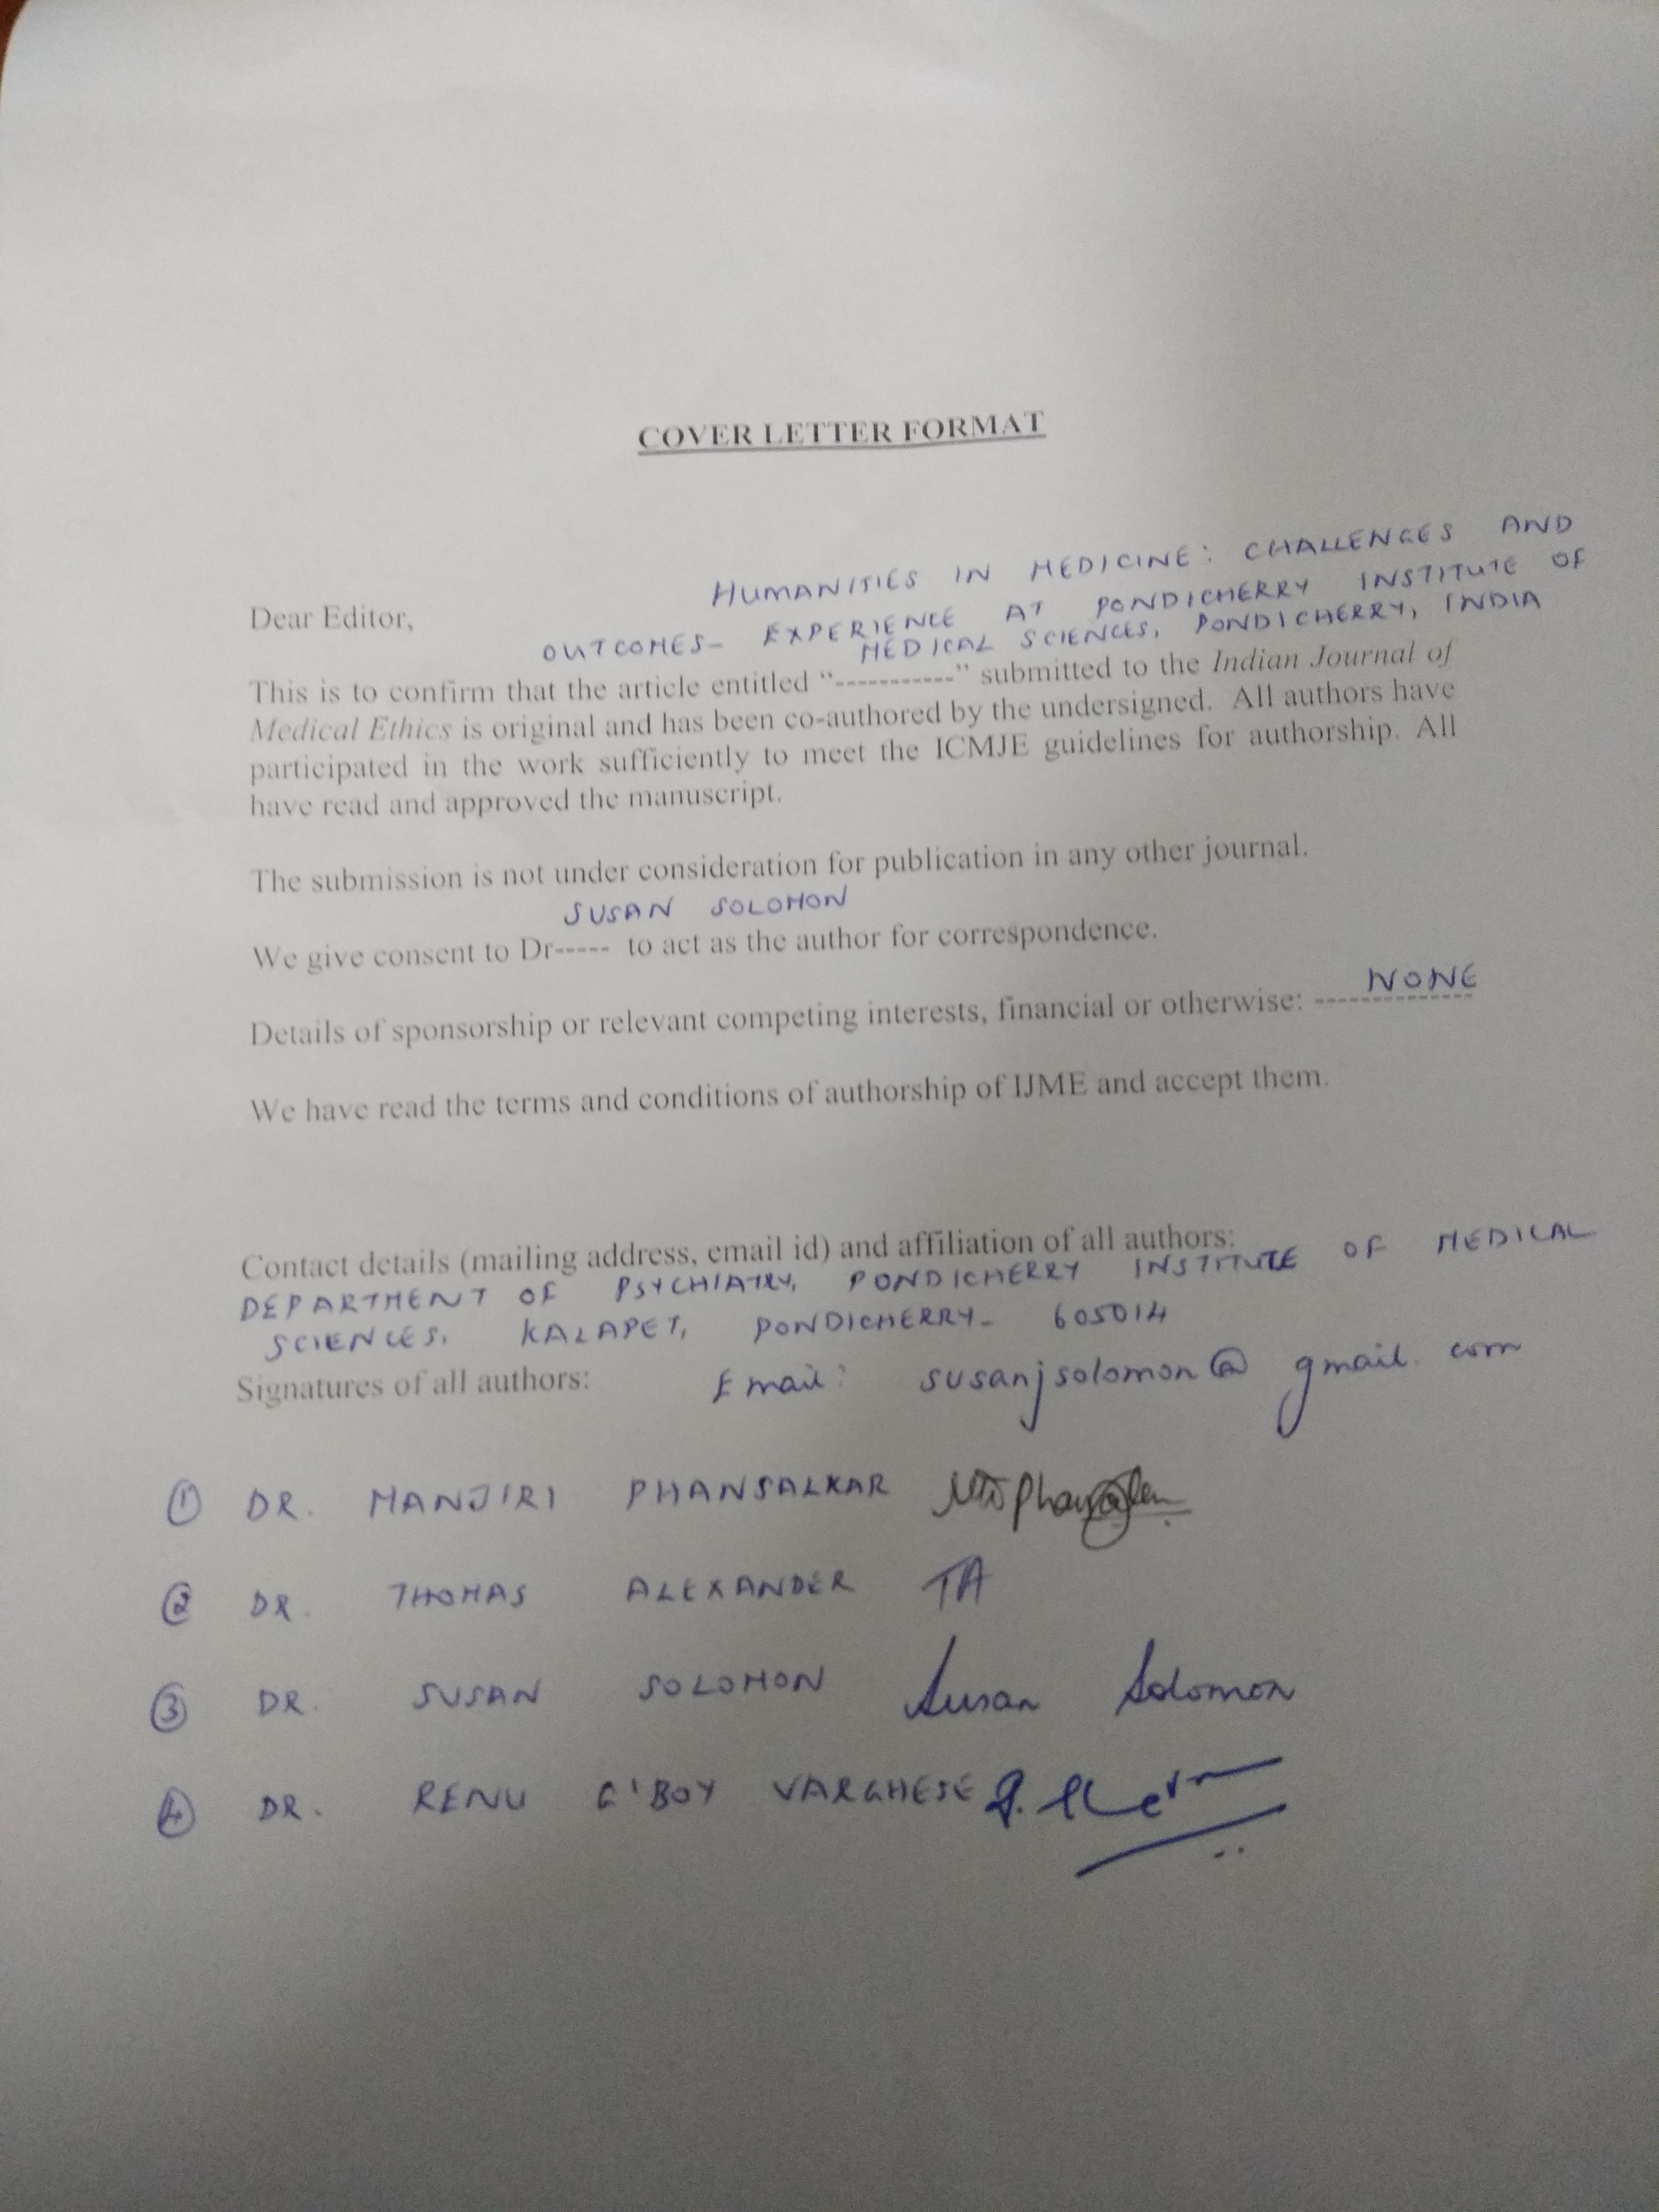 COVER LETTER FORMAT
HUMANITIES IN MEDICINE: CHALLENGES AND
Dear Editor,
OUTCOMES- EXPERIENCE AT PONDICHERRY INSTITUTE OF
MEDICAL SCIENCES, PONDICHERRY, INDIA
This is to confirm that the article entitled "-----------" submitted to the Indian Journal of
Medical Ethics is original and has been co-authored by the undersigned. All authors have
participated in the work sufficiently to meet the ICMJE guidelines for authorship. All
have read and approved the manuscript.
The submission is not under consideration for publication in any other journal.
SUSAN SOLOMON
We give consent to Dr----- to act as the author for correspondence.
NONE
Details of sponsorship or relevant competing interests, financial or otherwise: --------------
We have read the terms and conditions of authorship of IJME and accept them.
Contact details (mailing address, email id) and affiliation of all authors:
DEPARTMENT OF PSYCHIATRY, PONDICHERRY INSTITUTE OF MEDICAL
SCIENCES, KALAPET, PONDICHERRY- 605014
Signatures of all authors: Email: susanjsolomon@gmail.com
1 DR. MANJIRI PHANSALKAR
2 DR. THOMAS ALEXANDER TA
3 DR. SUSAN SOLOMON Susan Solomon
4 DR. RENU G'BOY VARGHESE